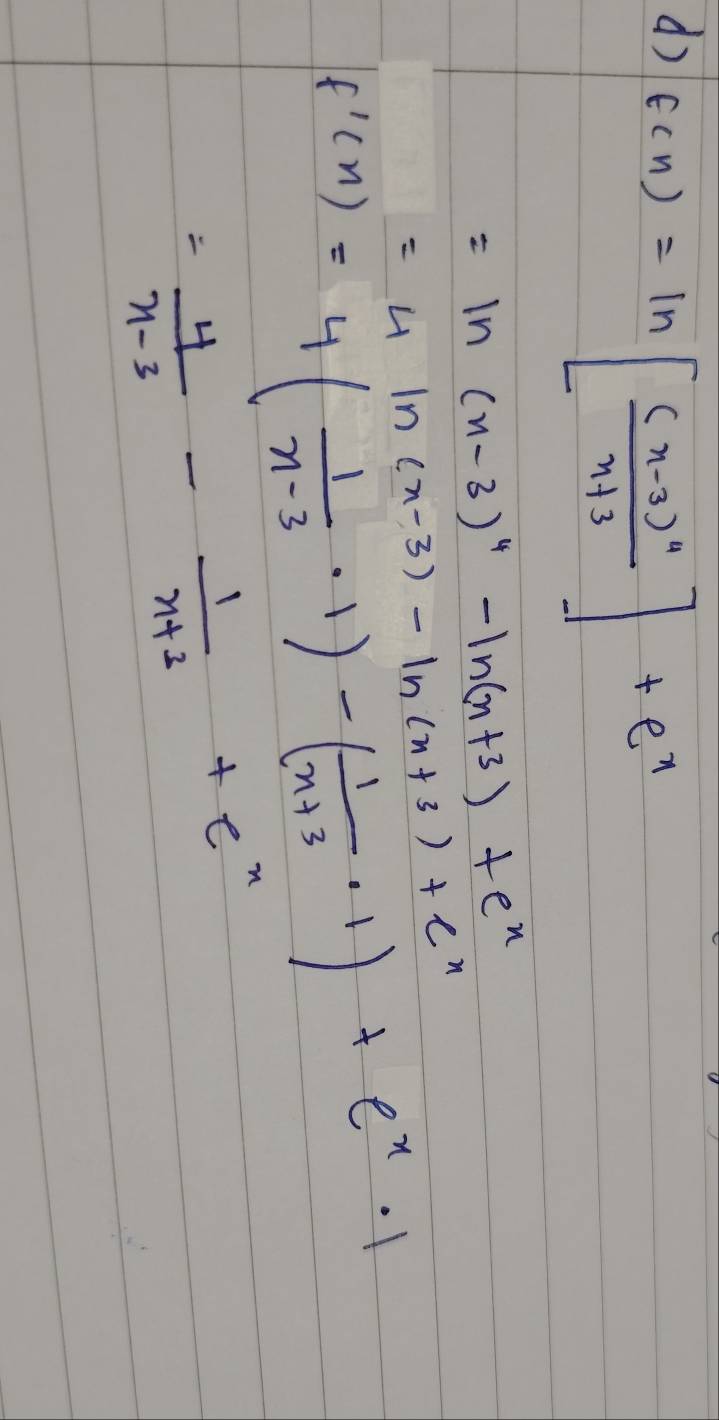 d) f(x) = ln [ (x-3)⁴ / x+3 ] + eˣ
= ln (x-3)⁴ - ln(x+3) + eˣ
= 4 ln (x-3) - ln (x+3) + eˣ
f'(x) = 4 ( 1 / x-3 · 1 ) - ( 1 / x+3 · 1 ) + eˣ · 1
= 4 / x-3 - 1 / x+3 + eˣ